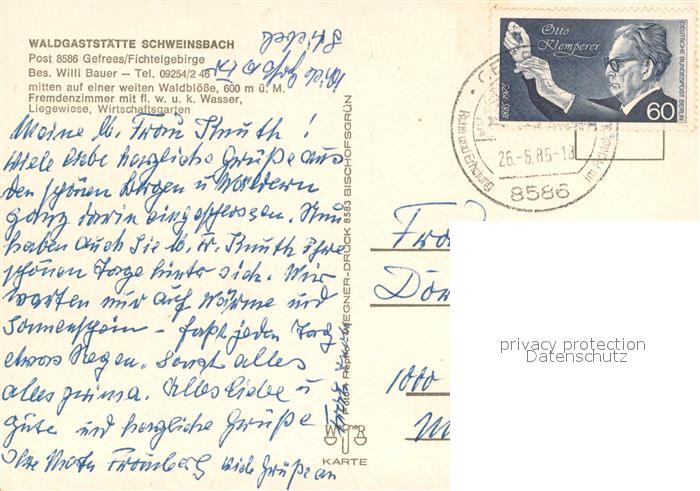 WALDGASTSTÄTTE SCHWEINSBACH
Post 8586 Gefrees/Fichtelgebirge
Bes. Willi Bauer – Tel. 09254/2 46
mitten auf einer weiten Waldblöße, 600 m ü. M.
Fremdenzimmer mit fl. w. u. k. Wasser,
Liegewiese, Wirtschaftsgarten
Meine lb. Frau Knuth!
Viele liebe herzliche Grüße aus
den schönen Bergen u Wäldern
ganz darin eingeschlossen. Nun
haben auch Sie lb. Fr. Knuth ihre
schönen Tage hinter sich. Wir
warten nur auf Wärme und
Sonnenschein – fast jeden Tag
etwas Regen. Sonst alles
alles prima. Alles Liebe u
gute und herzliche Grüße
Ihre Viele Grüße an
Foto + Repro WEGNER-DRUCK 8583 BISCHOFSGRÜN
KARTE
Otto
Klemperer
1885-1973
DEUTSCHE BUNDESPOST BERLIN
60
Ruhe und Erholung
26.-6.85-18
8586
Frau
1000
privacy protection
Datenschutz